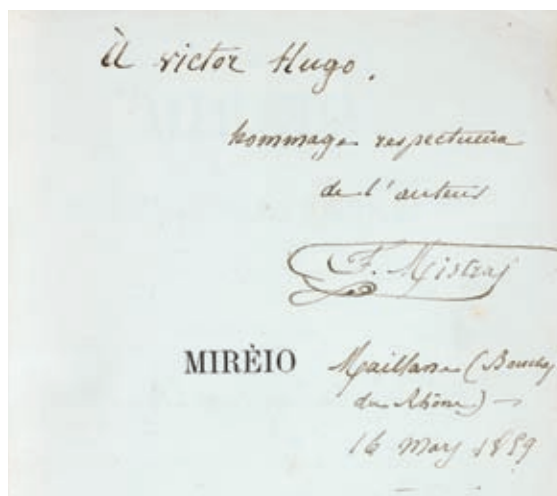 À Victor Hugo.
hommage respectueux
de l'auteur
F. Mistral
MIRÈIO
Maillane (Bouches
du Rhône) —
16 Mars 1859